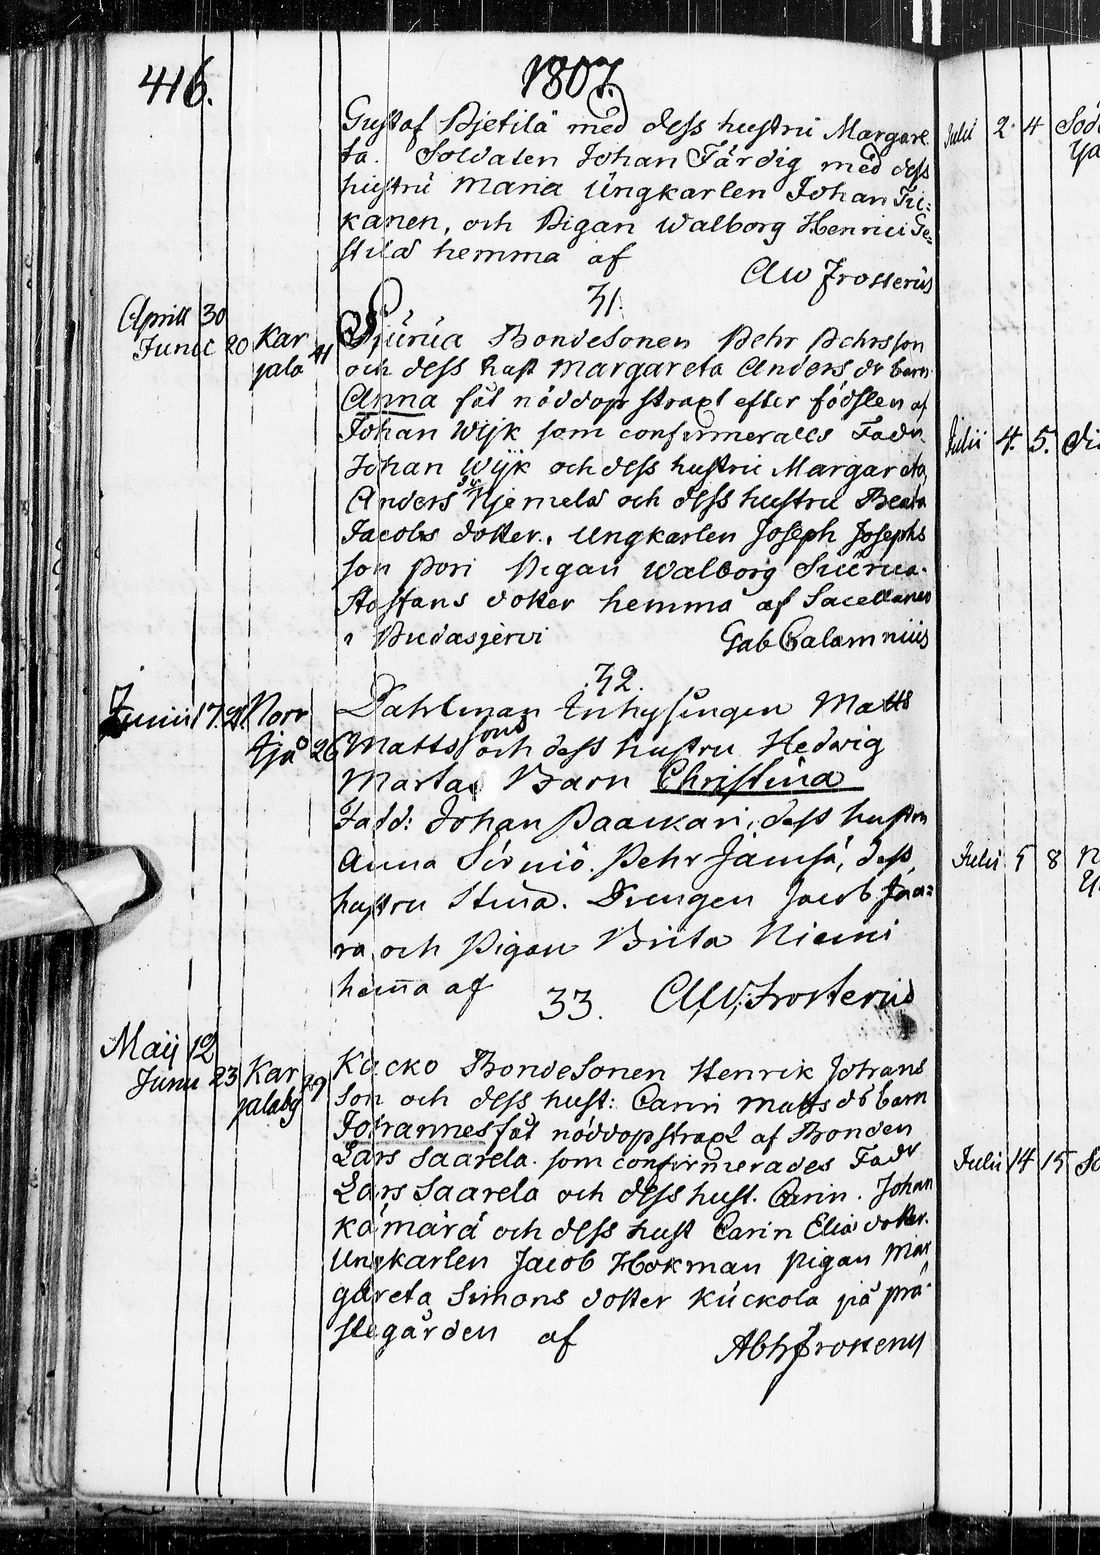 416.
1807.
Gustaf Pjetilä med dess hustru Margare
ta. Soldaten Johan Färdig med dess
hustru Maria Ungkarlen Johan Tii=
kanen, och Pigan Walborg Henrici Ge=
stilä hemma af
AW Frosterus
31.
Aprill 30
Junii 20 Kar
jala 41
Siurua Bondesonen Pehr Pehrsson
och dess hust Margareta Anders dr barn
Anna fåt nöddop straxt efter födslen af
Johan Wijk som confirmerades Fadr
Johan Wijk och dess hustru Margareta
Anders dr Hjemelä och dess hustru Beata
Jacobs dotter. Ungkarlen Joseph Josephs
son Pori Pigan Walborg Siurua
Staffans dotter hemma af Sacellanen
i Pudasjervi
Gab Calamnius
32.
Junii 17. 21. Norr
sjö 26
Dahlman Inhysingen Matts
Mattsson och dess hustru Hedwig
Marta Barn Christina
Fadd: Johan Paackari, dess hustru
Anna Sirniö. Pehr Jämsä, dess
hustru Stina. Drengen Jacob Jaa=
ra och Pigan Brita Niemi
hemma af
AW. Frosterus
33.
Maij 12
Junii 23 Kar
jalaby 29
Kucko Bondesonen Henrik Johans
son och dess hust: Carin Matts dr barn
Johannes fåt nöddop straxt af Bonden
Lars Saarela som confirmerades Fadr
Lars Saarela och dess hust. Carin. Johan
Kämärä och dess hust Carin Elia dotter.
Ungkarlen Jacob Hokman pigan Mar
gareta Simons dotter Kuckola på prä
stegården af
Abh Frosterus
Julii 2. 4
Julii 4. 5.
Julii 5 8
Julii 14 15